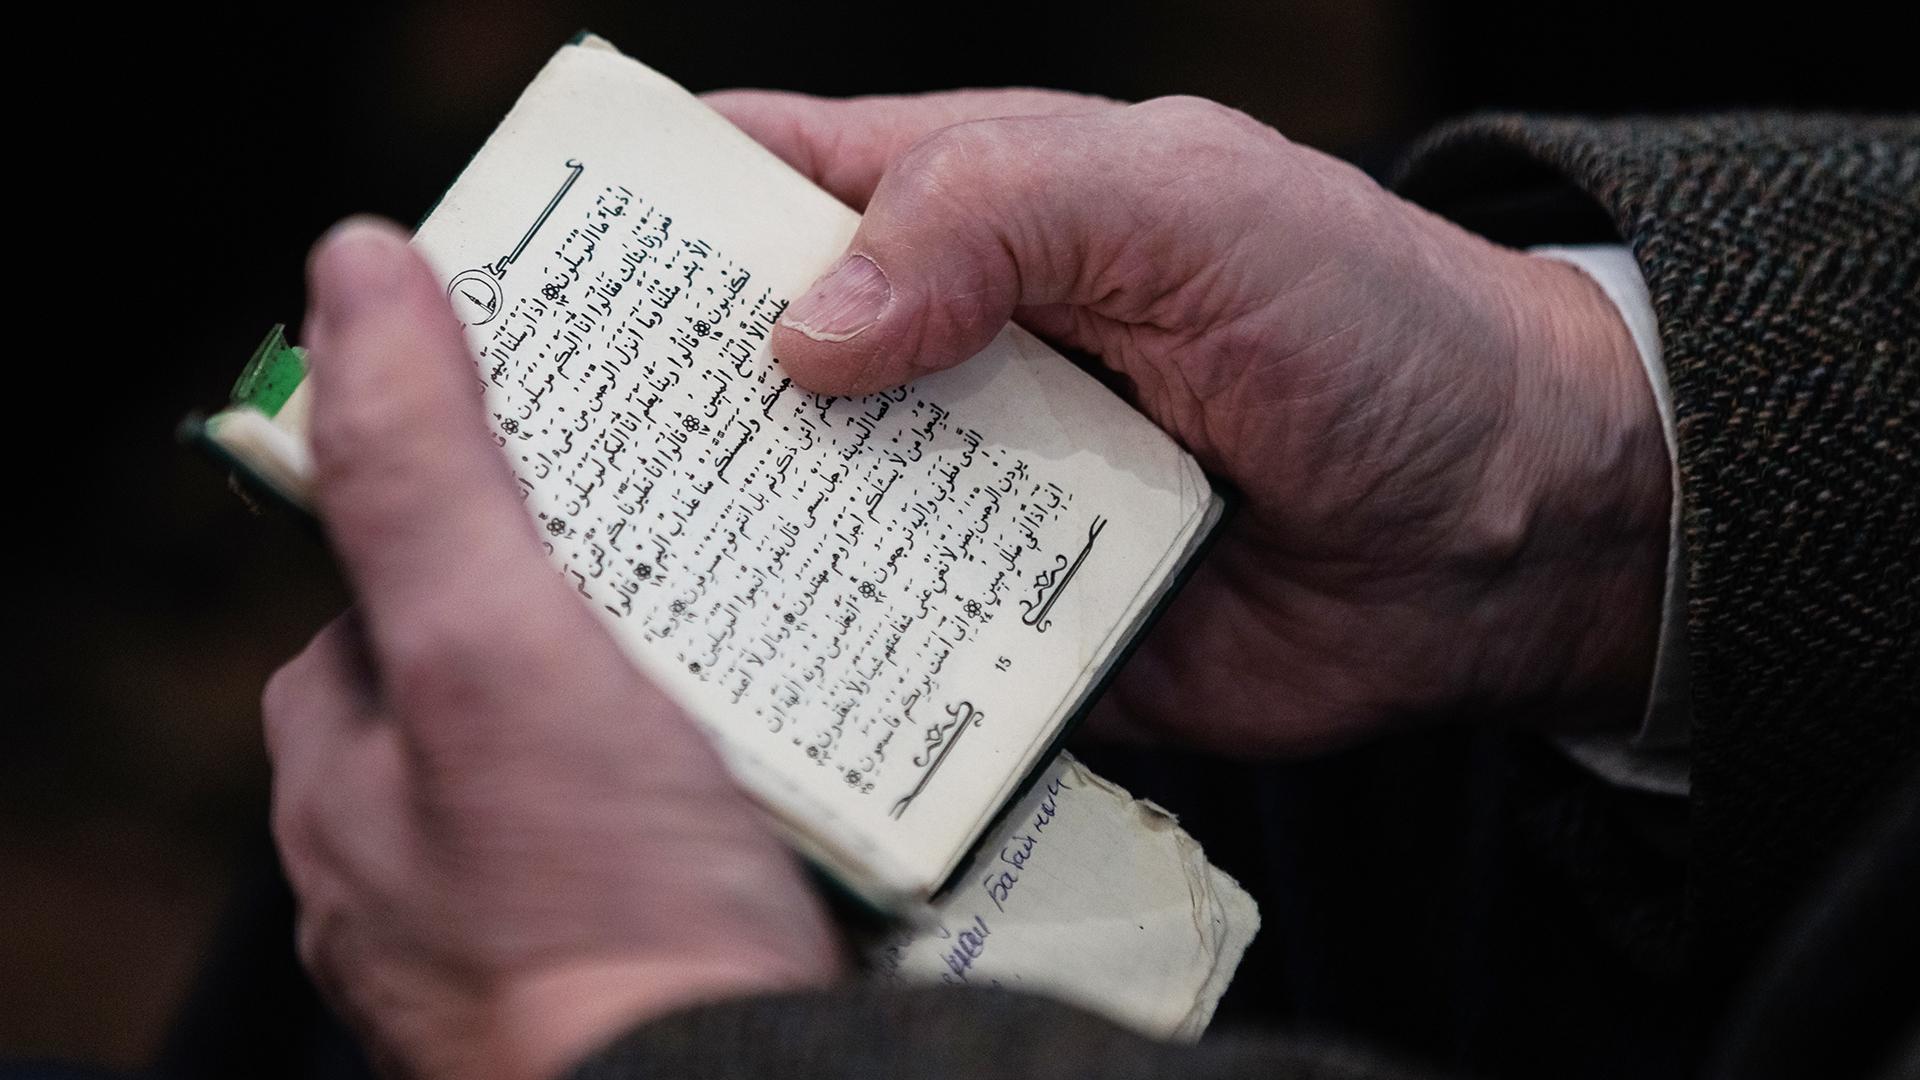 اِذْ جَاءَهَا الْمُرْسَلُونَ ١٣ اِذْ اَرْسَلْنَا اِلَيْهِمُ
فَعَزَّزْنَا بِثَالِثٍ فَقَالُوا اِنَّا اِلَيْكُمْ مُرْسَلُونَ
اِلَّا بَشَرٌ مِثْلُنَا وَمَا اَنْزَلَ الرَّحْمٰنُ مِنْ شَىْءٍ اِنْ
تَكْذِبُونَ ١٥ قَالُوا رَبُّنَا يَعْلَمُ اِنَّا اِلَيْكُمْ لَمُرْسَلُونَ ١٦
عَلَيْنَا اِلَّا الْبَلٰغُ الْمُبِينُ ١٧ قَالُوا اِنَّا تَطَيَّرْنَا بِكُمْ لَئِنْ لَمْ
وَلَيَمَسَّنَّكُمْ مِنَّا عَذَابٌ اَلِيمٌ ١٨ قَالُوا
اَئِنْ ذُكِّرْتُمْ بَلْ اَنْتُمْ قَوْمٌ مُسْرِفُونَ ١٩ وَجَاءَ
مِنْ اَقْصَا الْمَدِينَةِ رَجُلٌ يَسْعٰى قَالَ يٰقَوْمِ اتَّبِعُوا الْمُرْسَلِينَ ٢٠
اِتَّبِعُوا مَنْ لَا يَسْئَلُكُمْ اَجْرًا وَهُمْ مُهْتَدُونَ ٢١ وَمَالِىَ لَا اَعْبُدُ
الَّذِى فَطَرَنِى وَاِلَيْهِ تُرْجَعُونَ ٢٢ ءَاَتَّخِذُ مِنْ دُونِهِ اٰلِهَةً اِنْ
يُرِدْنِ الرَّحْمٰنُ بِضُرٍّ لَا تُغْنِ عَنِّى شَفَاعَتُهُمْ شَيْئًا وَلَا يُنْقِذُونِ ٢٣
اِنِّى اِذًا لَفِى ضَلٰلٍ مُبِينٍ ٢٤ اِنِّى اٰمَنْتُ بِرَبِّكُمْ فَاسْمَعُونِ ٢٥
15